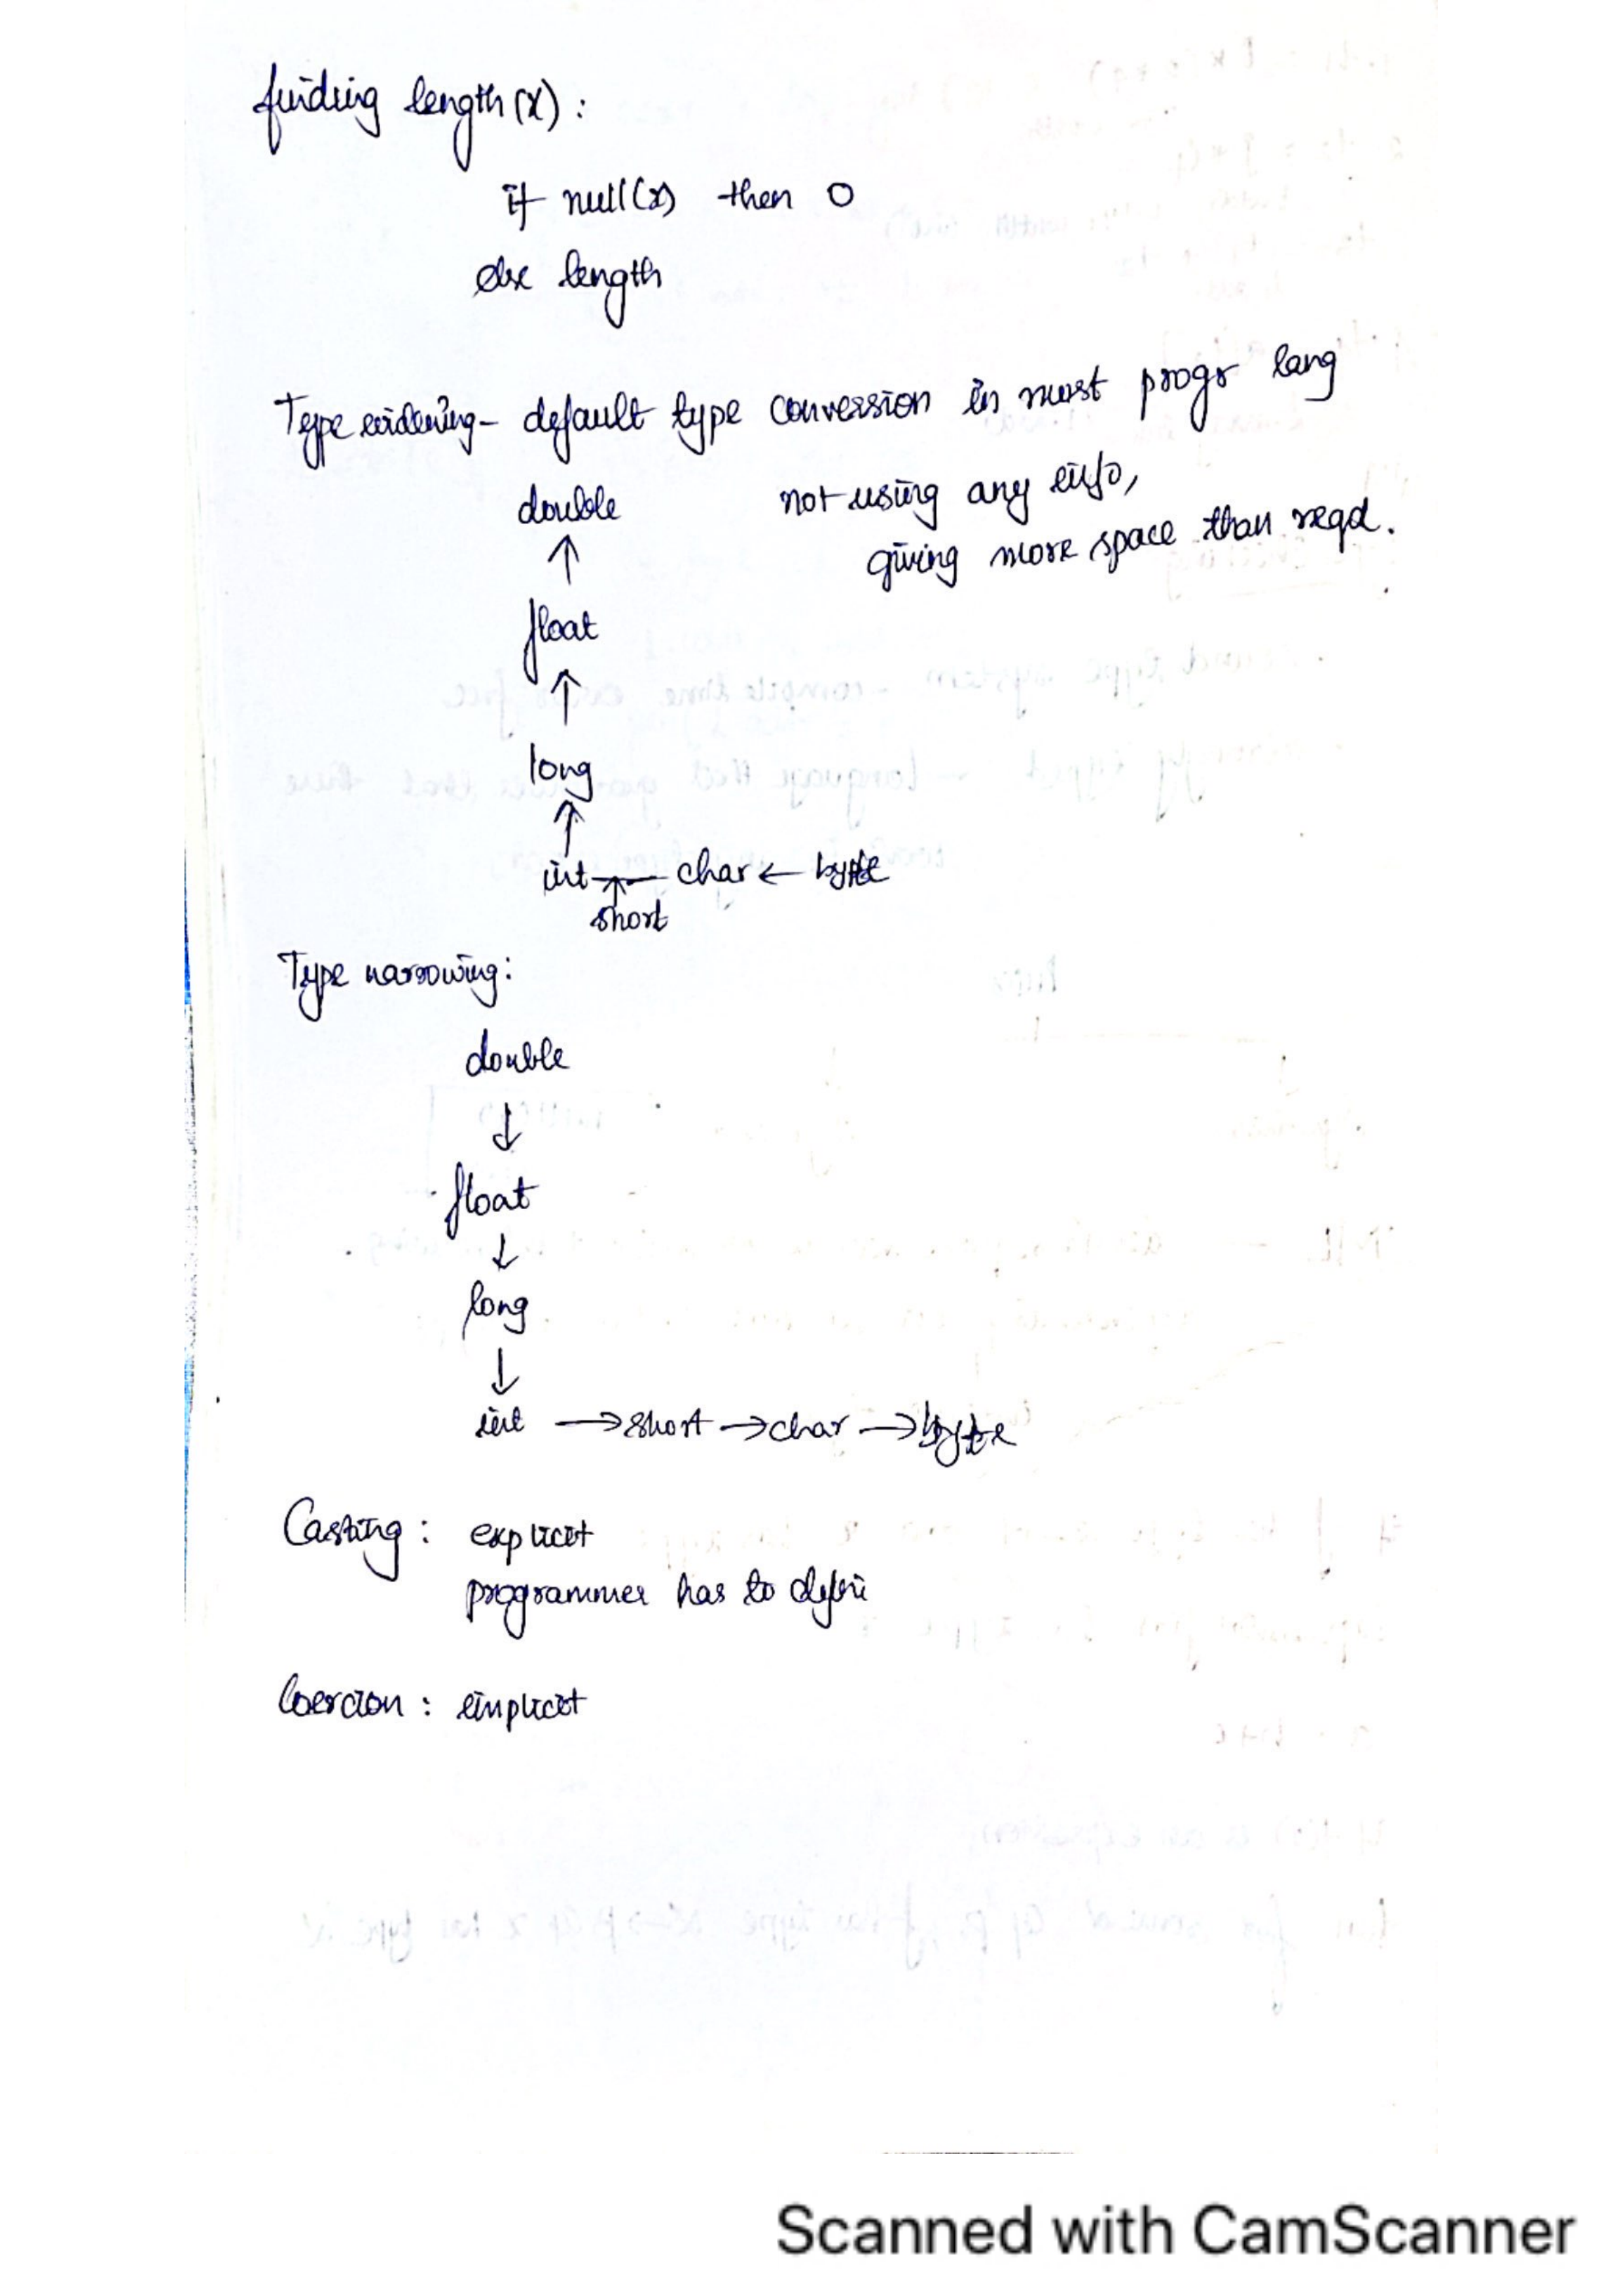 finding length(x):
if null(x) then 0
else length
Type widening - default type conversion in most progr lang
double not using any info,
↑ giving more space than reqd.
float
↑
long
↑
int — char ← byte
↑
short
Type narrowing:
double
↓
float
↓
long
↓
int → short → char → byte
Casting: explicit
programmer has to
Coercion: implicit
Scanned with CamScanner